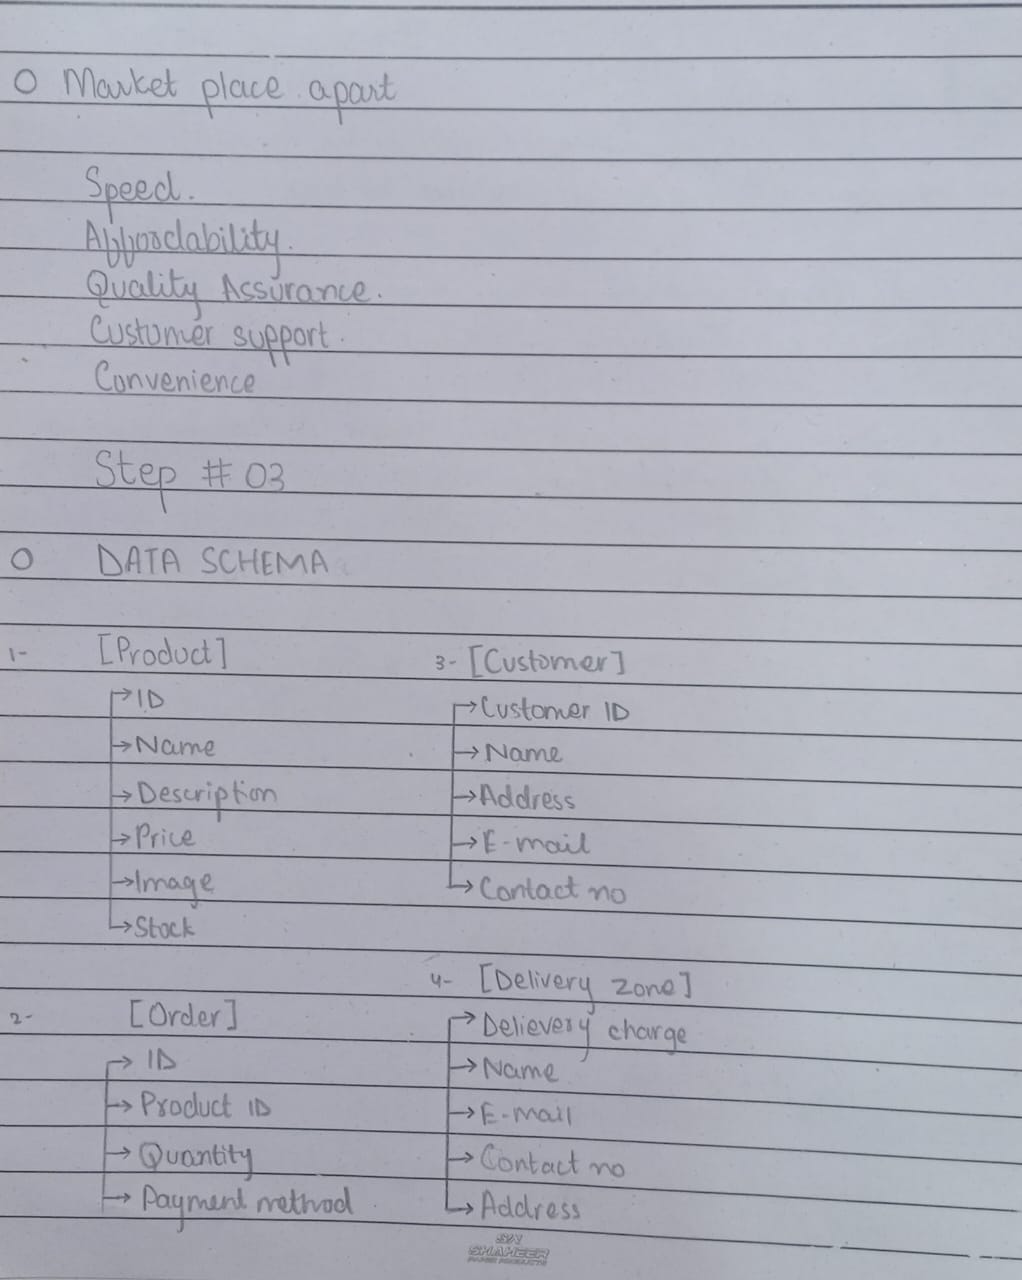 O Market place apart
Speed.
Affordability.
Quality Assurance.
Customer support.
Convenience
Step # 03
O DATA SCHEMA
1- [Product]
→ID
→Name
→Description
→Price
→Image
→Stock
2- [Order]
→ID
→Product ID
→Quantity
→Payment method
3- [Customer]
→Customer ID
→Name
→Address
→E-mail
→Contact no
4- [Delivery zone]
→Delievery charge
→Name
→E-mail
→Contact no
→Address
SHAHEER
PAPER PRODUCTS